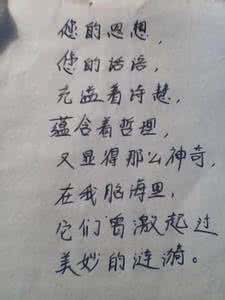 您的思想，
您的话语，
充溢着诗慧，
蕴含着哲理，
又显得那么神奇，
在我脑海里，
它们曾激起过
美妙的涟漪。